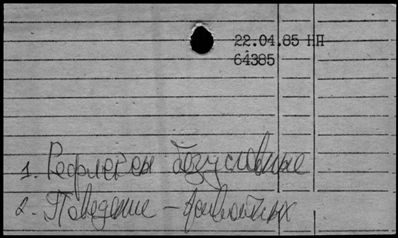 22.04.85 НН
64385
1. Рефлексы безусловные
2. Поведение – животных